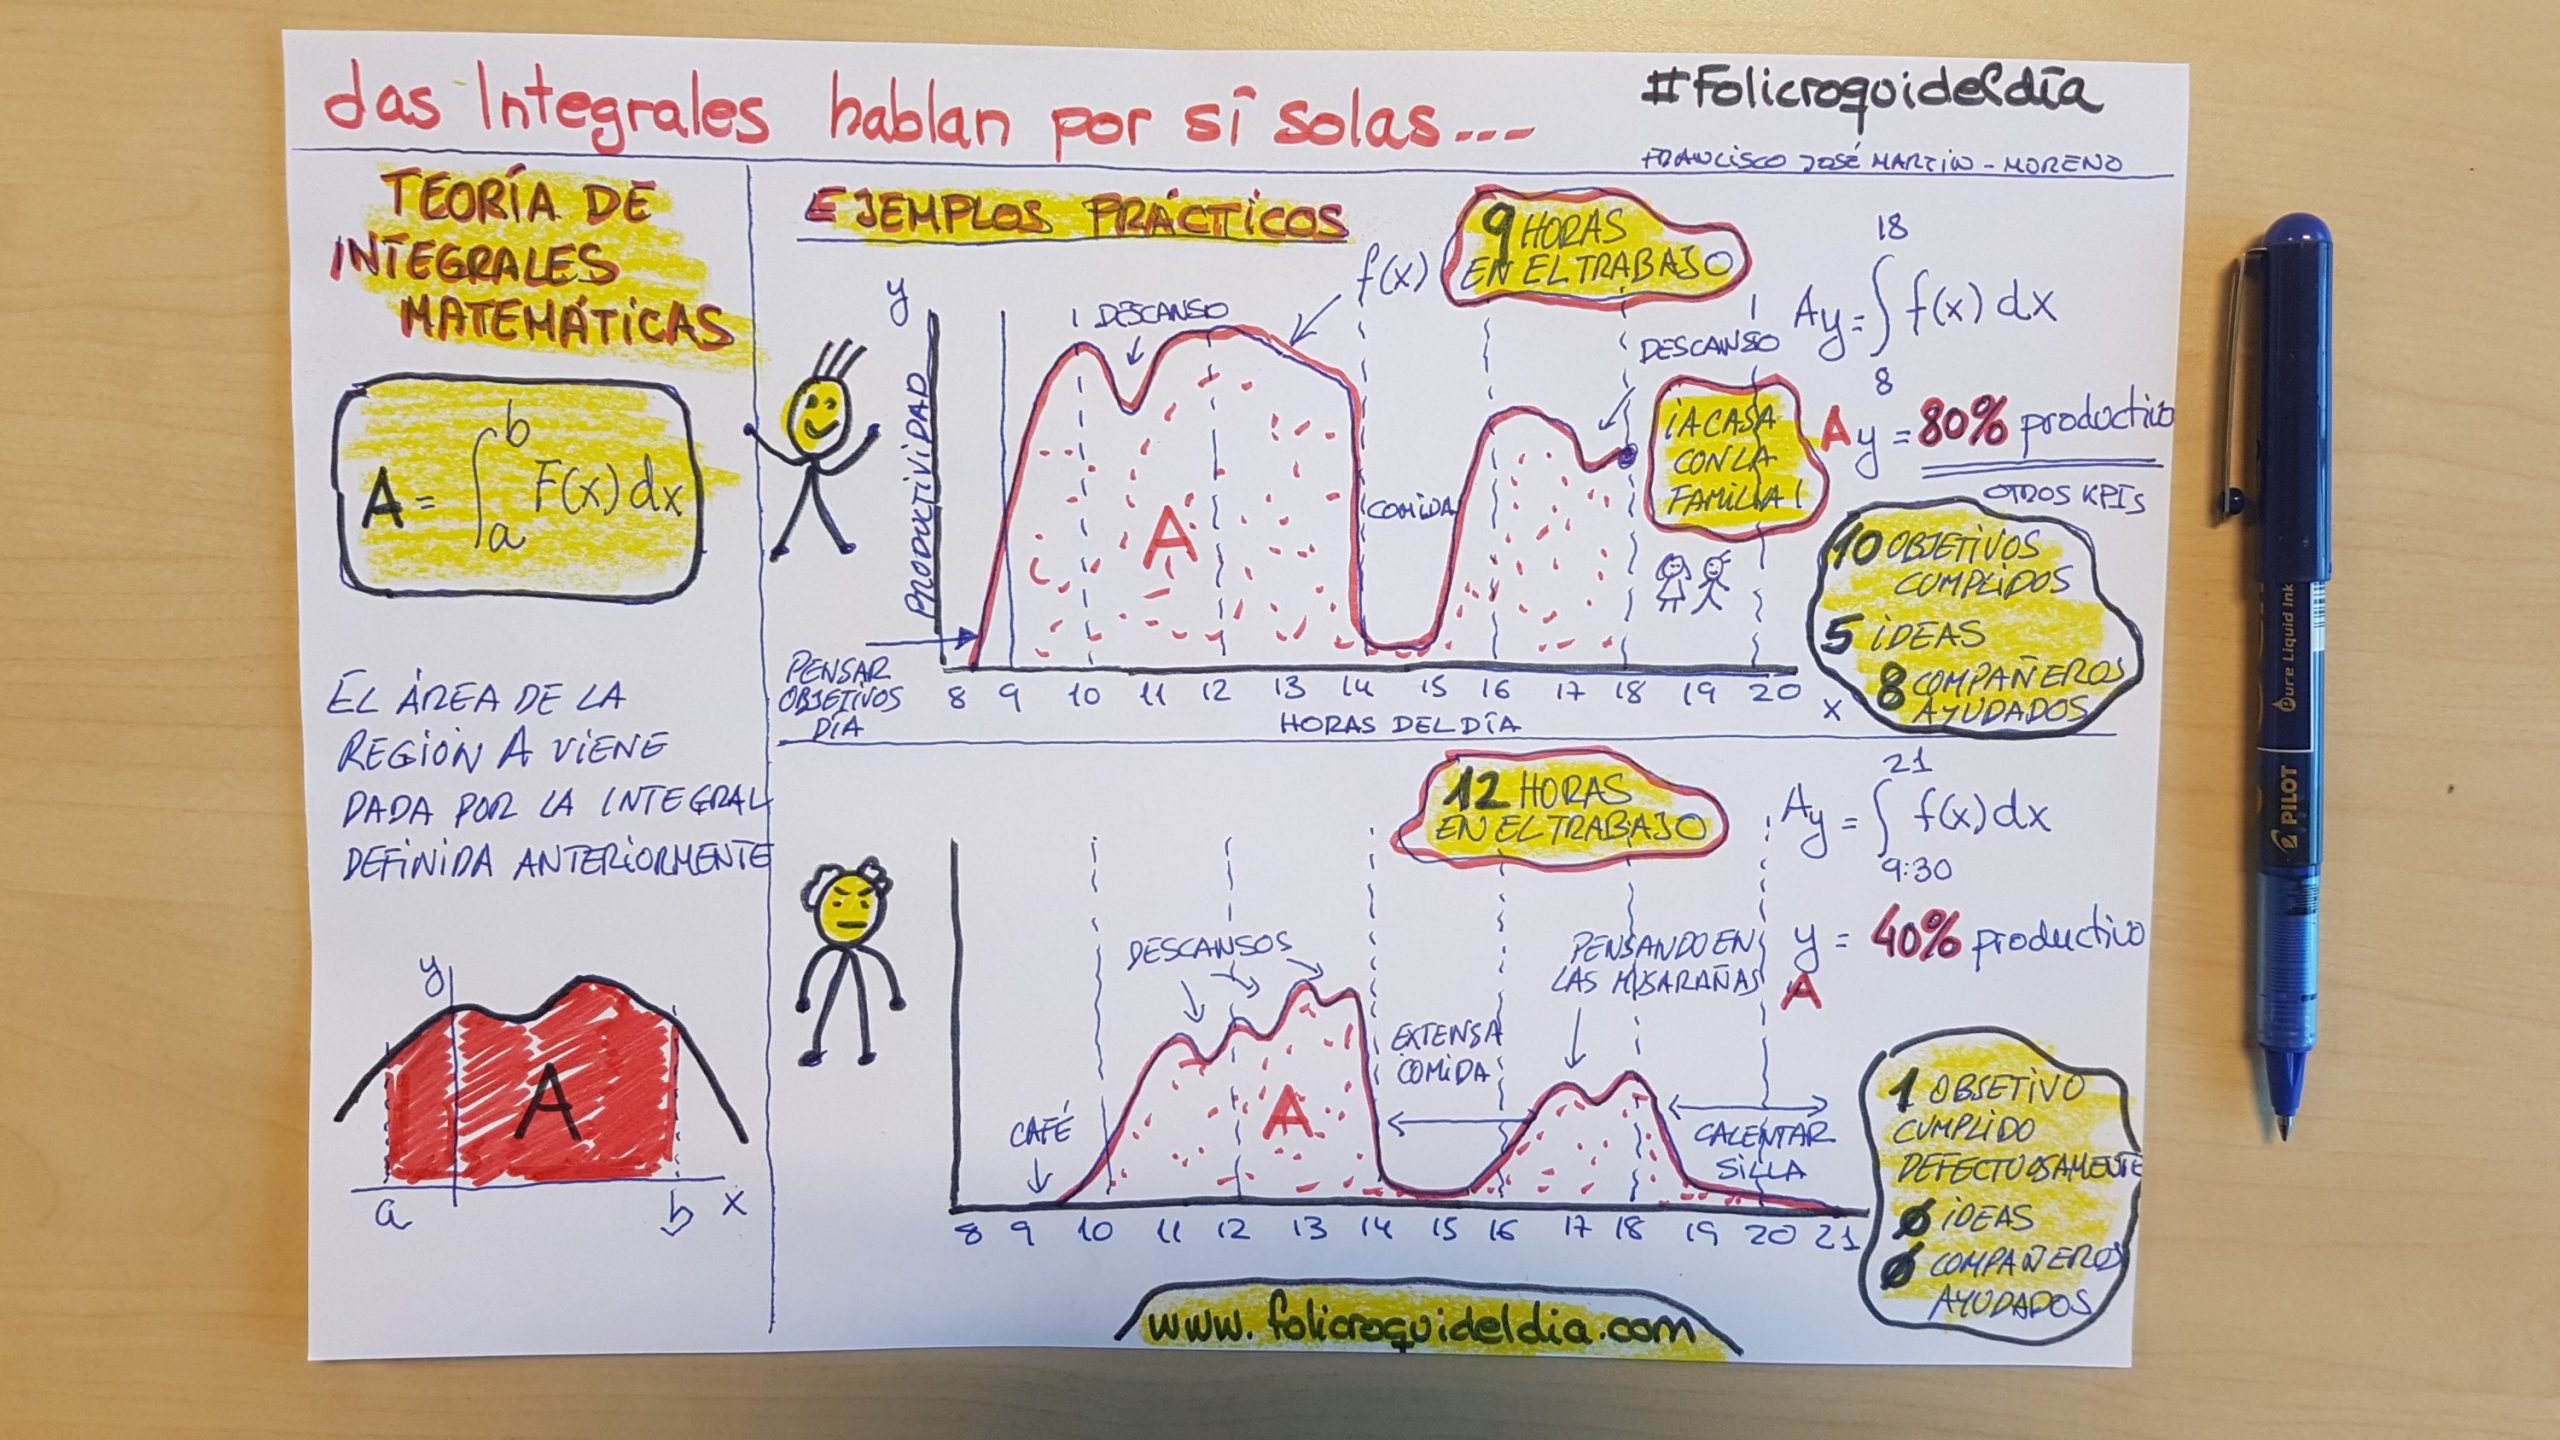 Las Integrales hablan por sí solas...
#Folicroquideldía
FRANCISCO JOSÉ MARTIN-MORENO
TEORÍA DE
INTEGRALES
MATEMÁTICAS
A = ∫ₐᵇ F(x) dx
EL ÁREA DE LA
REGIÓN A VIENE
DADA POR LA INTEGRAL
DEFINIDA ANTERIORMENTE
y
A
a
b
x
EJEMPLOS PRÁCTICOS
9 HORAS
EN EL TRABAJO
f(x)
y
DESCANSO
DESCANSO
PRODUCTIVIDAD
A
COMIDA
¡A CASA
CON LA
FAMILIA!
PENSAR
OBJETIVOS
DÍA
8 9 10 11 12 13 14 15 16 17 18 19 20 x
HORAS DEL DÍA
18
Ay = ∫ f(x) dx
8
Ay = 80% productivo
OTROS KPIs
10 OBJETIVOS
CUMPLIDOS
5 IDEAS
8 COMPAÑEROS
AYUDADOS
12 HORAS
EN EL TRABAJO
DESCANSOS
PENSANDO EN
LAS MUSARAÑAS
EXTENSA
COMIDA
CAFÉ
A
CALENTAR
SILLA
8 9 10 11 12 13 14 15 16 17 18 19 20 21
21
Ay = ∫ f(x) dx
9:30
y = 40% productivo
A
1 OBJETIVO
CUMPLIDO
DEFECTUOSAMENTE
0 IDEAS
0 COMPAÑEROS
AYUDADOS
www.folicroquideldia.com
PILOT
Pure Liquid Ink